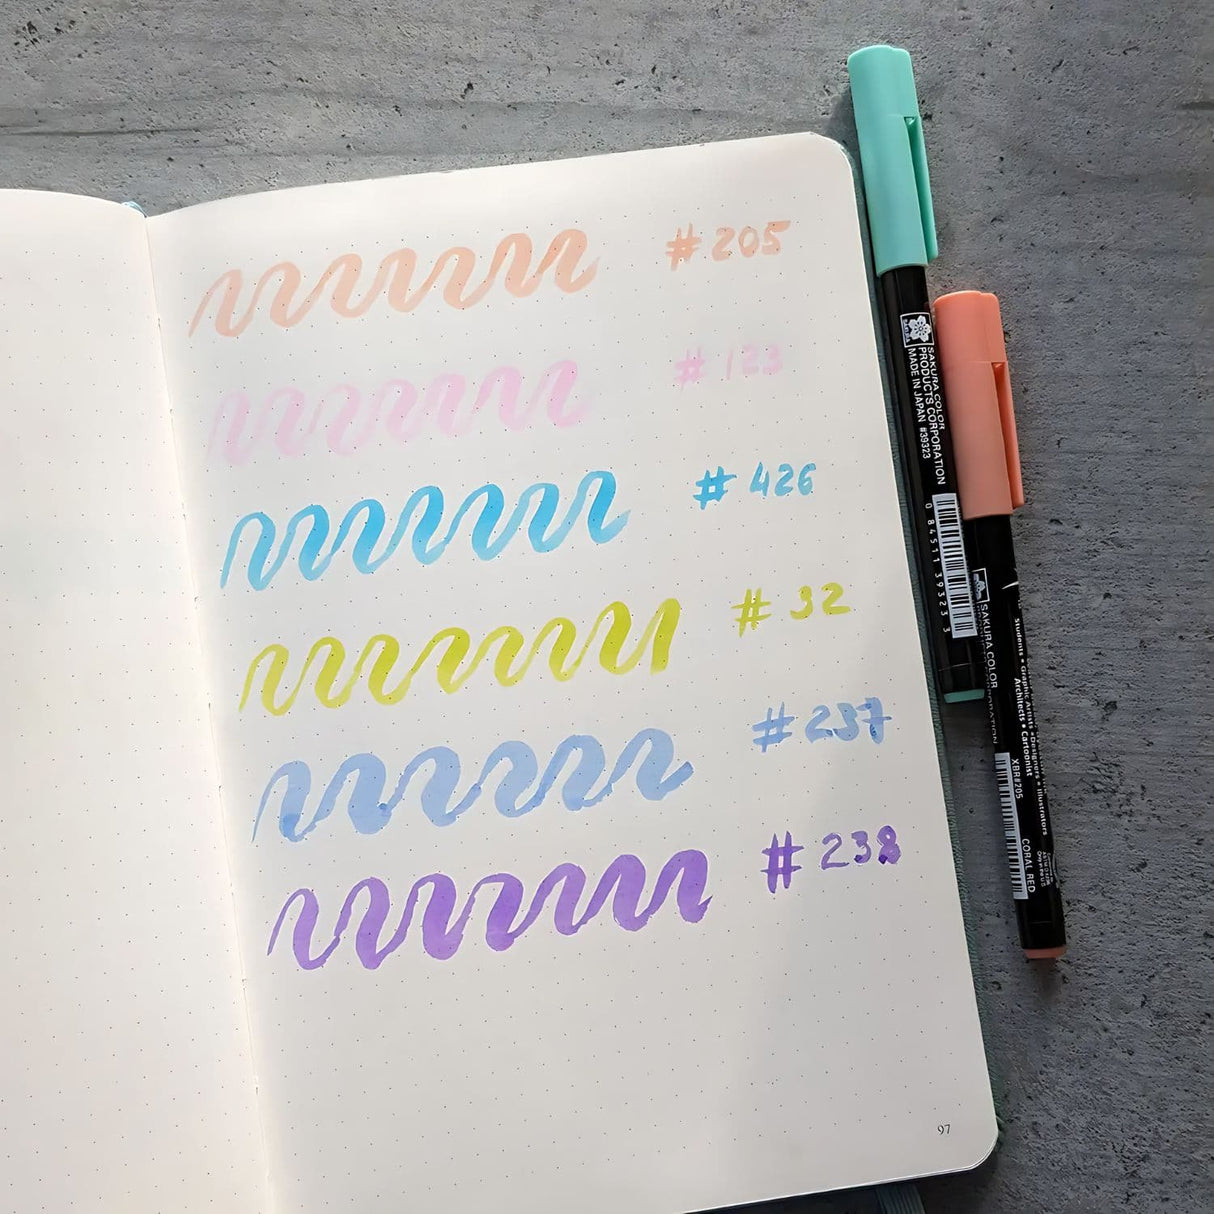 # 205
# 123
# 426
# 32
# 237
# 238
97
SAKURA COLOR
PRODUCTS CORPORATION
MADE IN JAPAN #39323
0 84511 39323 3
SAKURA COLOR
Students • Graphic Artists • Designers • Illustrators
Architects • Cartoonist
XBR#205
CORAL RED